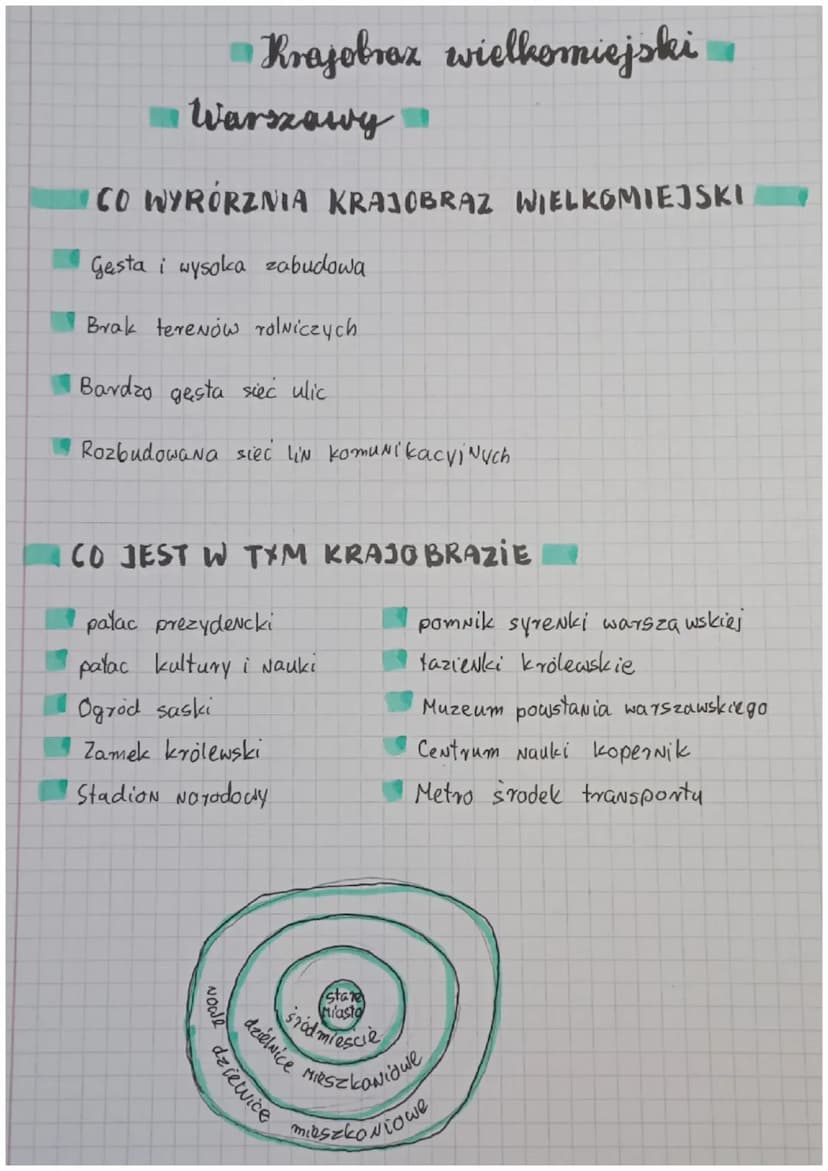 Krajobraz wielkomiejski
Warszawy
CO WYRÓRZNIA KRAJOBRAZ WIELKOMIEJSKI
Gęsta i wysoka zabudowa
Brak terenów rolniczych
Bardzo gęsta sieć ulic
Rozbudowana sieć lin komunikacyjnych
CO JEST W TYM KRAJOBRAZIE
pałac prezydencki
pałac kultury i nauki
Ogród saski
Zamek królewski
Stadion narodowy
pomnik syrenki warszawskiej
łazienki królewskie
Muzeum powstania warszawskiego
Centrum nauki kopernik
Metro środek transportu
stare
Miasto
śródmieście
dzielnice mieszkaniowe
nowe dzielnice mieszkoniowe